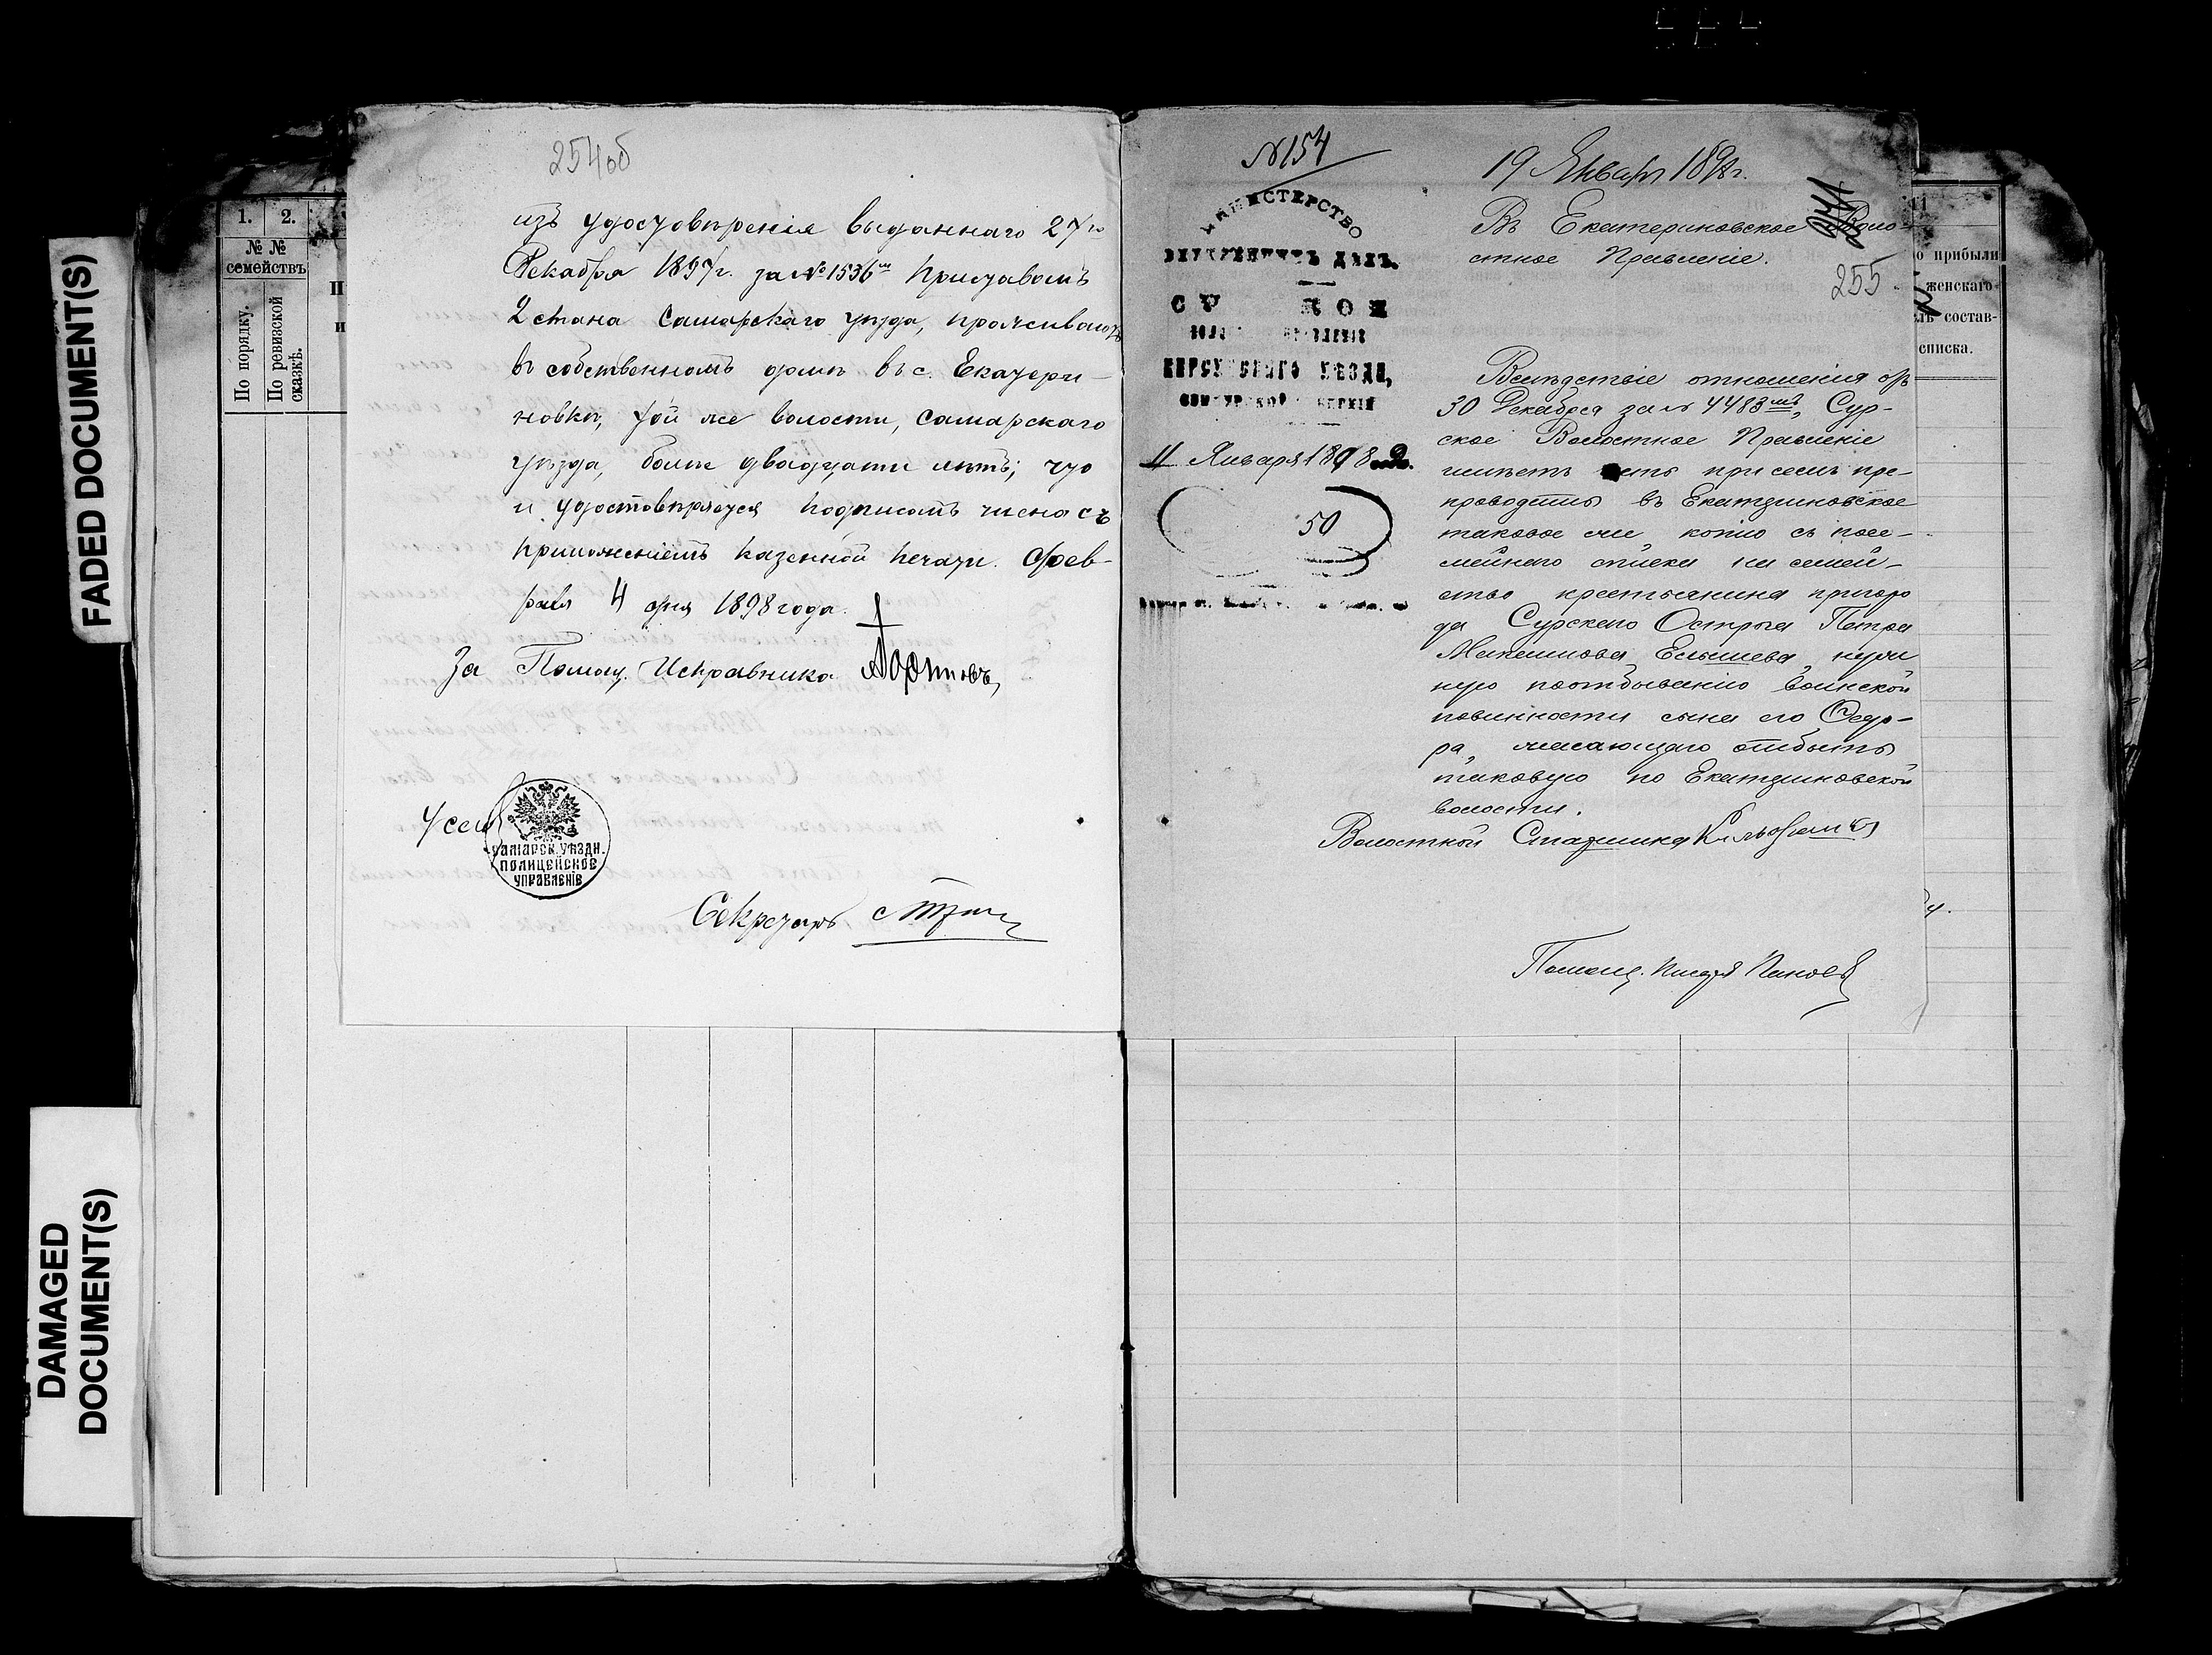 FADED DOCUMENT(S)
DAMAGED
DOCUMENT(S)
1.
2.
№ №
семействъ
По порядку.
По ревизской
сказкѣ.
254об
изъ удостовѣренія выданнаго 27го
Декабря 1897г. за № 1536мъ Приставомъ
2 стана Самарскаго уѣзда, проживаютъ
въ собственномъ домѣ въ с. Екатери-
новкѣ, той же волости, Самарскаго
уѣзда, болѣе двадцати лѣтъ; что
и удостовѣряется подписомъ
приложеніемъ казенной печати. Фев-
раля 4 дня 1898 года.
За Помощ. Исправника
САМАРСК. УѢЗДН.
ПОЛИЦЕЙСКОЕ
УПРАВЛЕНІЕ
Секретарь
№154
МИНИСТЕРСТВО
ВНУТРЕННИХЪ ДѢЛЪ.
КАРСУНСКАГО УѢЗДА,
11 Января 1898
50
19 Января 1898г.
Въ Екатериновское Воло-
стное Правленіе.
255
Вслѣдствіе отношенія отъ
30 Декабря за № 4483мъ, Сур-
ское Волостное Правленіе
имѣетъ честь при семъ пре-
проводить въ Екатериновское
таковое же, копію съ посе-
мейнаго списка на семей-
ство крестьянина приго­ро
да Сурскаго Острога Петра
Максимова Елышева, нужн
ную по отбыванію воинской
повинности сына его Ѳедо-
ра, желающаго отбыть
таковую по Екатериновской
волости.
Волостной Старшина
Помощ. Писаря Пановъ
прибыли
женскаго
состав-
списка.